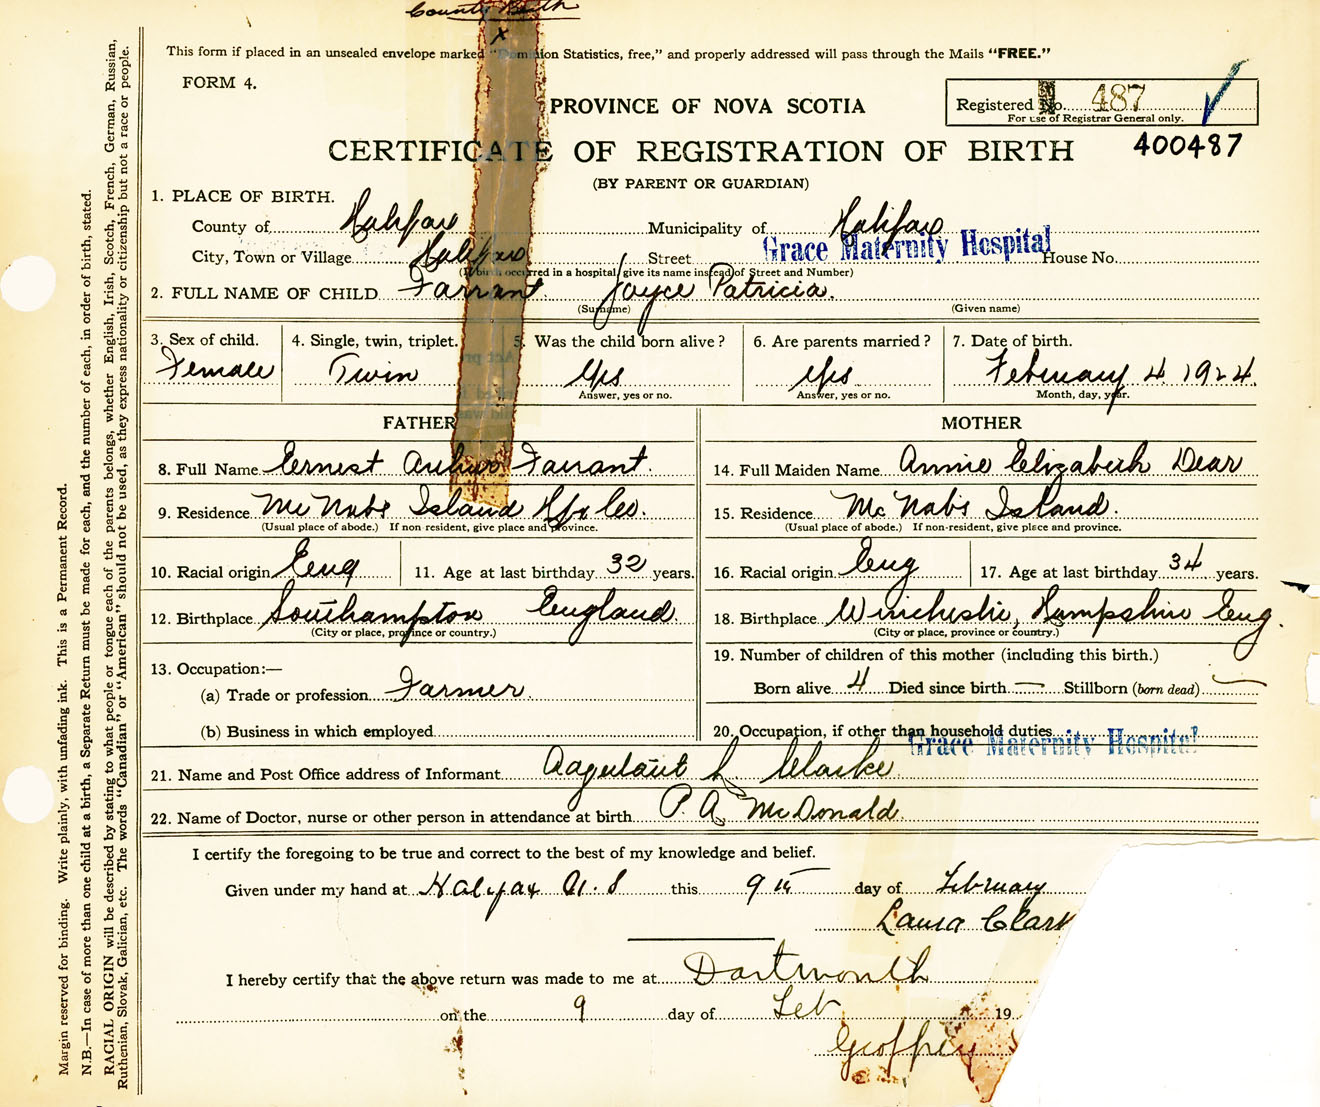 County Birth
X
This form if placed in an unsealed envelope marked "Dominion Statistics, free," and properly addressed will pass through the Mails "FREE."
FORM 4.
PROVINCE OF NOVA SCOTIA
Registered No. 487
For use of Registrar General only.
CERTIFICATE OF REGISTRATION OF BIRTH
400487
(BY PARENT OR GUARDIAN)
1. PLACE OF BIRTH.
County of Halifax Municipality of Halifax
City, Town or Village Halifax Street Grace Maternity Hospital House No.
(If birth occurred in a hospital give its name instead of Street and Number)
2. FULL NAME OF CHILD Farrant Joyce Patricia.
(Surname) (Given name)
3. Sex of child. 4. Single, twin, triplet. 5. Was the child born alive? 6. Are parents married? 7. Date of birth.
Female Twin yes yes February 4 1924.
Answer, yes or no. Answer, yes or no. Month, day, year.
FATHER MOTHER
8. Full Name Ernest Arthur Farrant. 14. Full Maiden Name Annie Elizabeth Dear
9. Residence McNabs Island Hfx Co. 15. Residence McNabs Island.
(Usual place of abode.) If non-resident, give place and province. (Usual place of abode.) If non-resident, give place and province.
10. Racial origin Eng 11. Age at last birthday 32 years. 16. Racial origin Eng 17. Age at last birthday 34 years.
12. Birthplace Southampton England. 18. Birthplace Winchester, Hampshire Eng.
(City or place, province or country.) (City or place, province or country.)
13. Occupation:— 19. Number of children of this mother (including this birth.)
(a) Trade or profession Farmer. Born alive 4 Died since birth — Stillborn (born dead) —
(b) Business in which employed 20. Occupation, if other than household duties
Grace Maternity Hospital
21. Name and Post Office address of Informant L. Clarke
22. Name of Doctor, nurse or other person in attendance at birth P. A. McDonald.
I certify the foregoing to be true and correct to the best of my knowledge and belief.
Given under my hand at Halifax N.S this 9th day of February
Laura Clark
I hereby certify that the above return was made to me at Dartmouth
on the 9 day of Feb 19
Geoffrey
Margin reserved for binding. Write plainly, with unfading ink. This is a Permanent Record.
N.B.—In case of more than one child at a birth, a Separate Return must be made for each, and the number of each, in order of birth, stated.
RACIAL ORIGIN will be described by stating to what people or tongue each of the parents belongs, whether English, Irish, Scotch, French, German, Russian,
Ruthenian, Slovak, Galician, etc. The words "Canadian" or "American" should not be used, as they express nationality or citizenship but not a race or people.